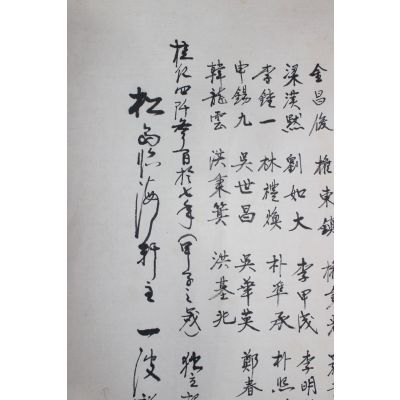 金昌俊 權東鎮 權
梁漢默 劉如大 李甲成 李明
李鍾一 林禮煥 朴準承 朴熙
申錫九 吳世昌 吳華英 鄭春
韓龍雲 洪秉箕 洪基兆
檀紀四阡參百拾七年(甲子之歲) 独立
松島臨海軒主 一波